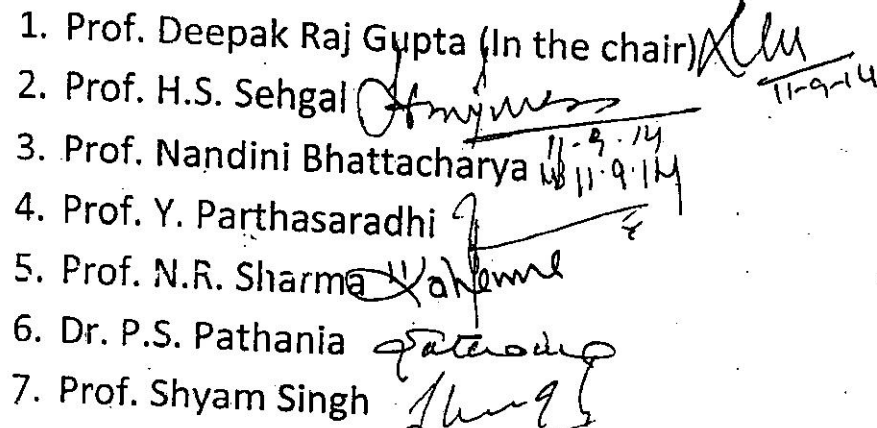 1. Prof. Deepak Raj Gupta (In the chair)
11-9-14
2. Prof. H.S. Sehgal
11-9-14
3. Prof. Nandini Bhattacharya 11.9.14
4. Prof. Y. Parthasaradhi
5. Prof. N.R. Sharma
6. Dr. P.S. Pathania
7. Prof. Shyam Singh